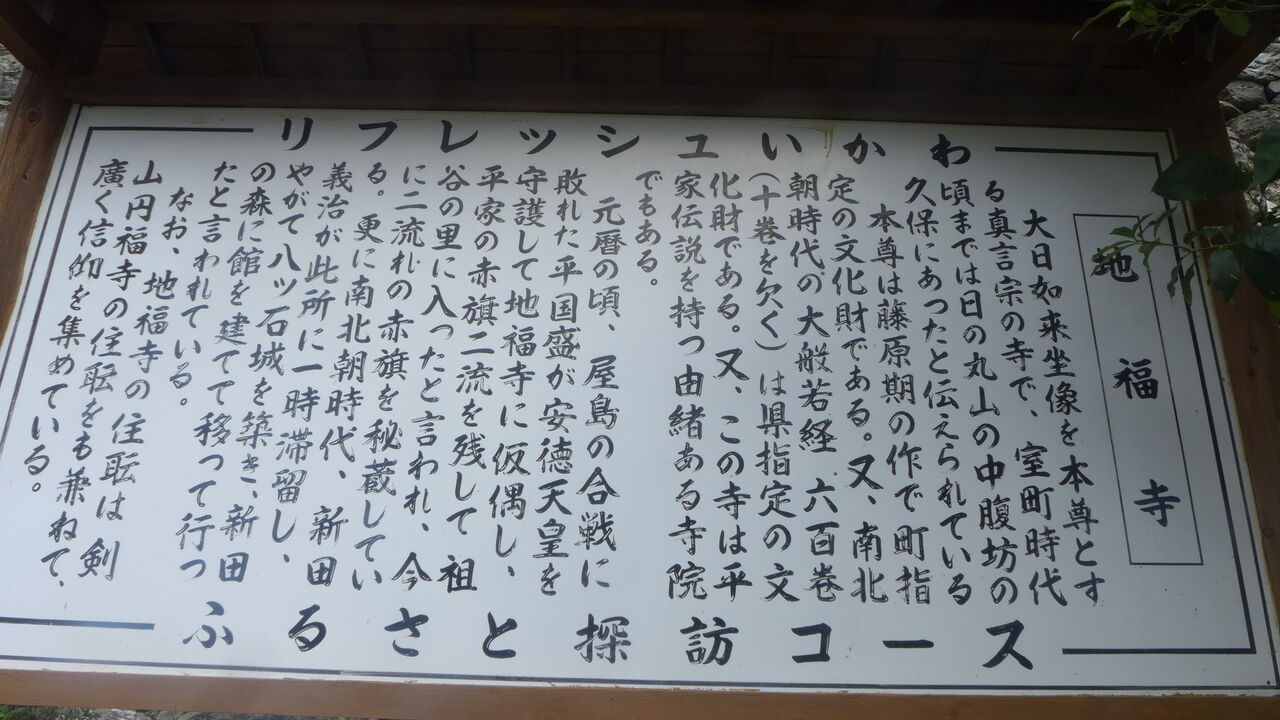 リフレッシュいかわ
地福寺
大日如来坐像を本尊とす
る真言宗の寺で、室町時代
頃までは日の丸山の中腹坊の
久保にあったと伝えられている
本尊は藤原期の作で町指
定の文化財である。又、南北
朝時代の大般若経六百巻
(十巻を欠く)は県指定の文
化財である。又、この寺は平
家伝説を持つ由緒ある寺院
でもある。
元暦の頃、屋島の合戦に
敗れた平国盛が安徳天皇を
守護して地福寺に仮偶し、
平家の赤旗二流を残して祖
谷の里に入ったと言われ、今
に二流れの赤旗を秘蔵してい
る。更に南北朝時代、新田
義治が此所に一時滞留し、
やがて八ッ石城を築き、新田
の森に館を建てて移って行っ
たと言われている。
なお、地福寺の住職は剣
山円福寺の住職をも兼ねて、
廣く信仰を集めている。
ふるさと探訪コース